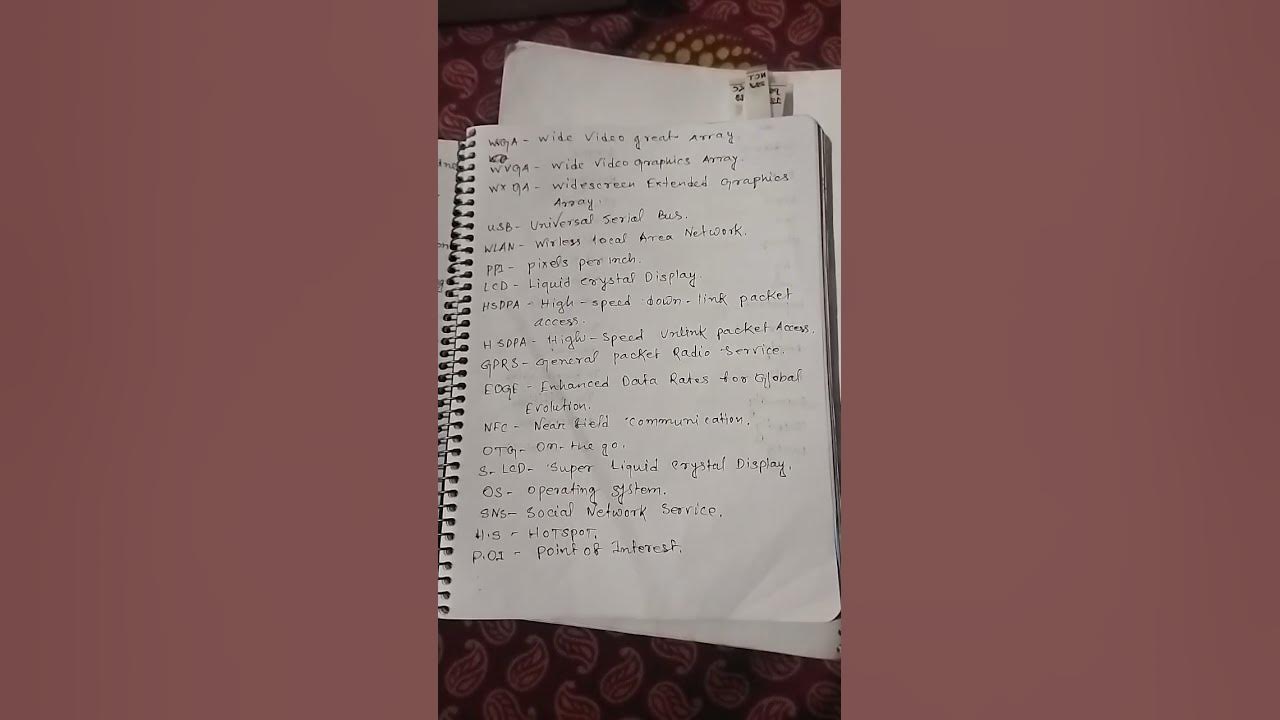 WGA - Wide Video great Array.
WVGA - Wide Video Graphics Array.
WXGA - Widescreen Extended Graphics
Array.
USB - Universal Serial Bus.
WLAN - Wirless local Area Network.
PPI - pixels per inch.
LCD - Liquid Crystal Display.
HSDPA - High - speed down - link packet
access.
HSDPA - High - Speed Unlink packet Access.
GPRS - General packet Radio Service.
EDGE - Enhanced Data Rates for Global
Evolution.
NFC - Near field Communication.
OTG - On - the go.
S - LCD - Super Liquid Crystal Display.
OS - operating System.
SNS - Social Network Service.
H.S - HOTSPOT.
P.OI - Point of Interest.